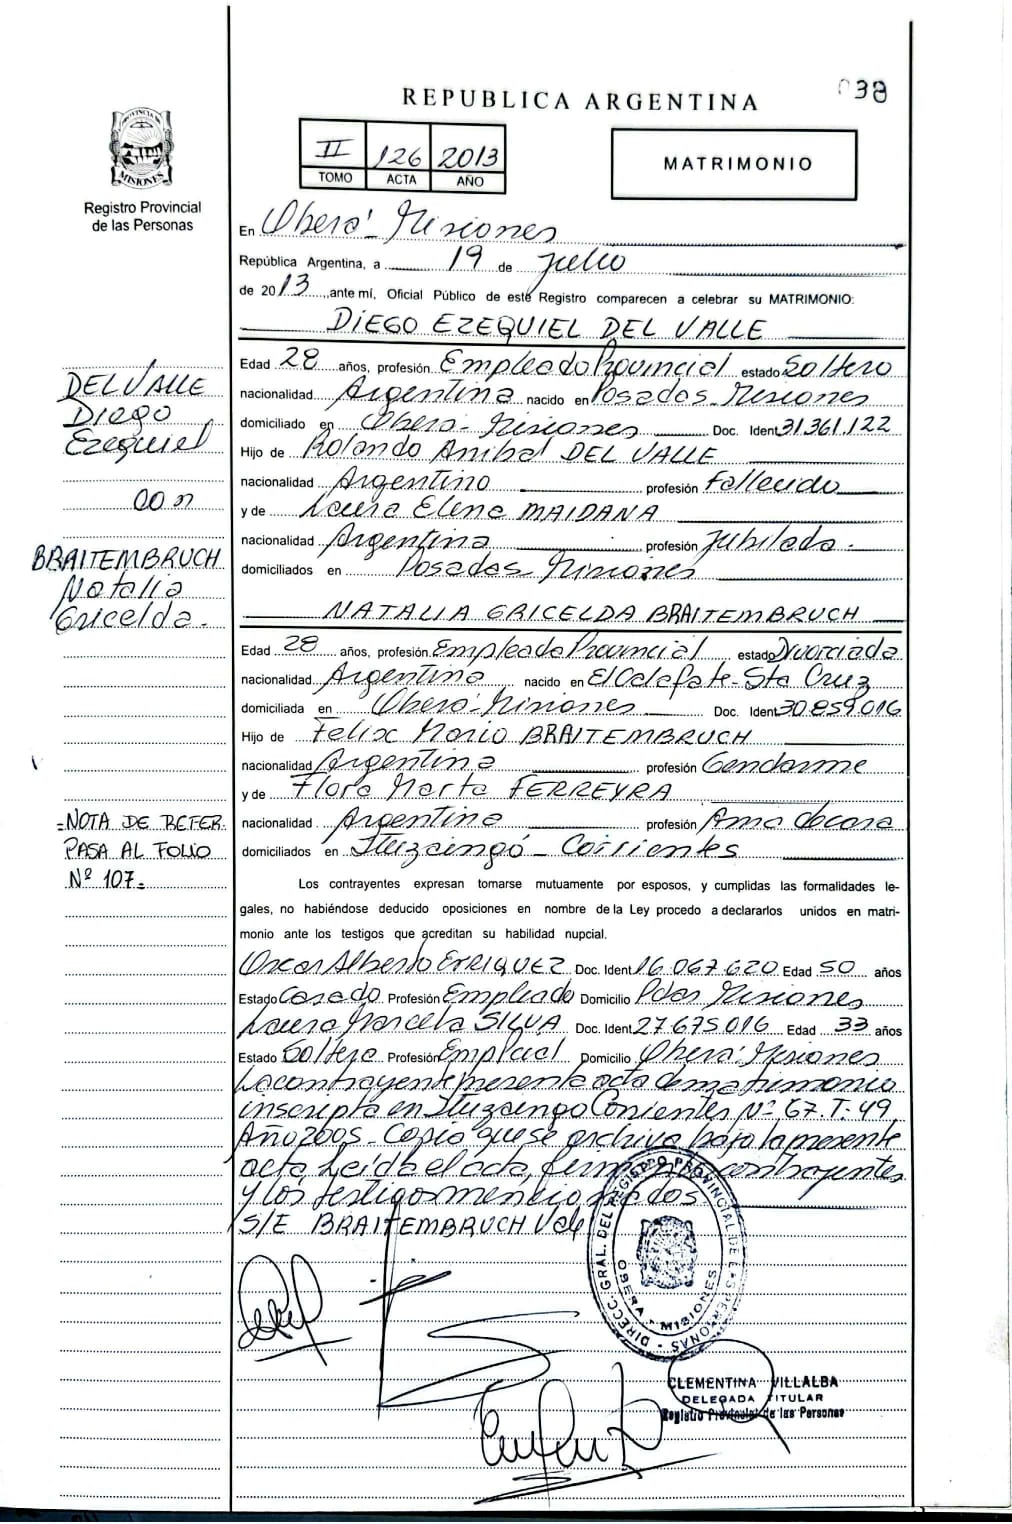 038
REPUBLICA ARGENTINA
II 126 2013
TOMO ACTA AÑO
MATRIMONIO
PROVINCIA DE
MISIONES
Registro Provincial
de las Personas
En Oberá - Misiones
República Argentina, a 19 de Julio
de 2013, ante mí, Oficial Público de este Registro comparecen a celebrar su MATRIMONIO:
DIEGO EZEQUIEL DEL VALLE
Edad 28 años, profesión Empleado Provincial estado Soltero
nacionalidad Argentina nacido en Posadas - Misiones
domiciliado en Oberá - Misiones Doc. Ident 31.361.122
Hijo de Rolando Anibal DEL VALLE
nacionalidad Argentino profesión Fallecido
y de Laura Elena MAIDANA
nacionalidad Argentina profesión Jubilada.
domiciliados en Posadas - Misiones
NATALIA GRICELDA BRAITEMBRUCH
Edad 28 años, profesión Empleada Provincial estado Divorciada
nacionalidad Argentina nacido en El Calafate - Sta Cruz
domiciliada en Oberá - Misiones Doc. Ident 30.859.016
Hijo de Felix Mario BRAITEMBRUCH
nacionalidad Argentina profesión Gendarme
y de Flora Marta FERREYRA
nacionalidad Argentina profesión Ama de casa
domiciliados en Ituzaingó - Corrientes
Los contrayentes expresan tomarse mutuamente por esposos, y cumplidas las formalidades le-
gales, no habiéndose deducido oposiciones en nombre de la Ley procedo a declararlos unidos en matri-
monio ante los testigos que acreditan su habilidad nupcial.
Oscar Alberto ENRIQUEZ Doc. Ident 16.067.620 Edad 50 años
Estado Casado Profesión Empleado Domicilio Pdas Misiones
Laura Marcela SILVA Doc. Ident 27.675.016 Edad 33 años
Estado Soltera Profesión Domicilio Oberá - Misiones
La contrayente presenta acta de matrimonio
inscripta en Ituzaingo Corrientes Nº 67. T. 49
Año 2005 - Copia que se archiva bajo la presente
acta Leída el acta, firman contrayentes
y los testigos mencionados
S/E BRAITEMBRUCH Vale
DEL VALLE
Diego
Ezequiel
con
BRAITEMBRUCH
Natalia
Gricelda.
=NOTA DE REFER.
PASA AL FOLIO
Nº 107=
DIRECC. GRAL. DEL REGISTRO PROVINCIAL DE LAS PERSONAS
OBERA - MISIONES
CLEMENTINA VILLALBA
DELEGADA TITULAR
Registro Provincial de las Personas